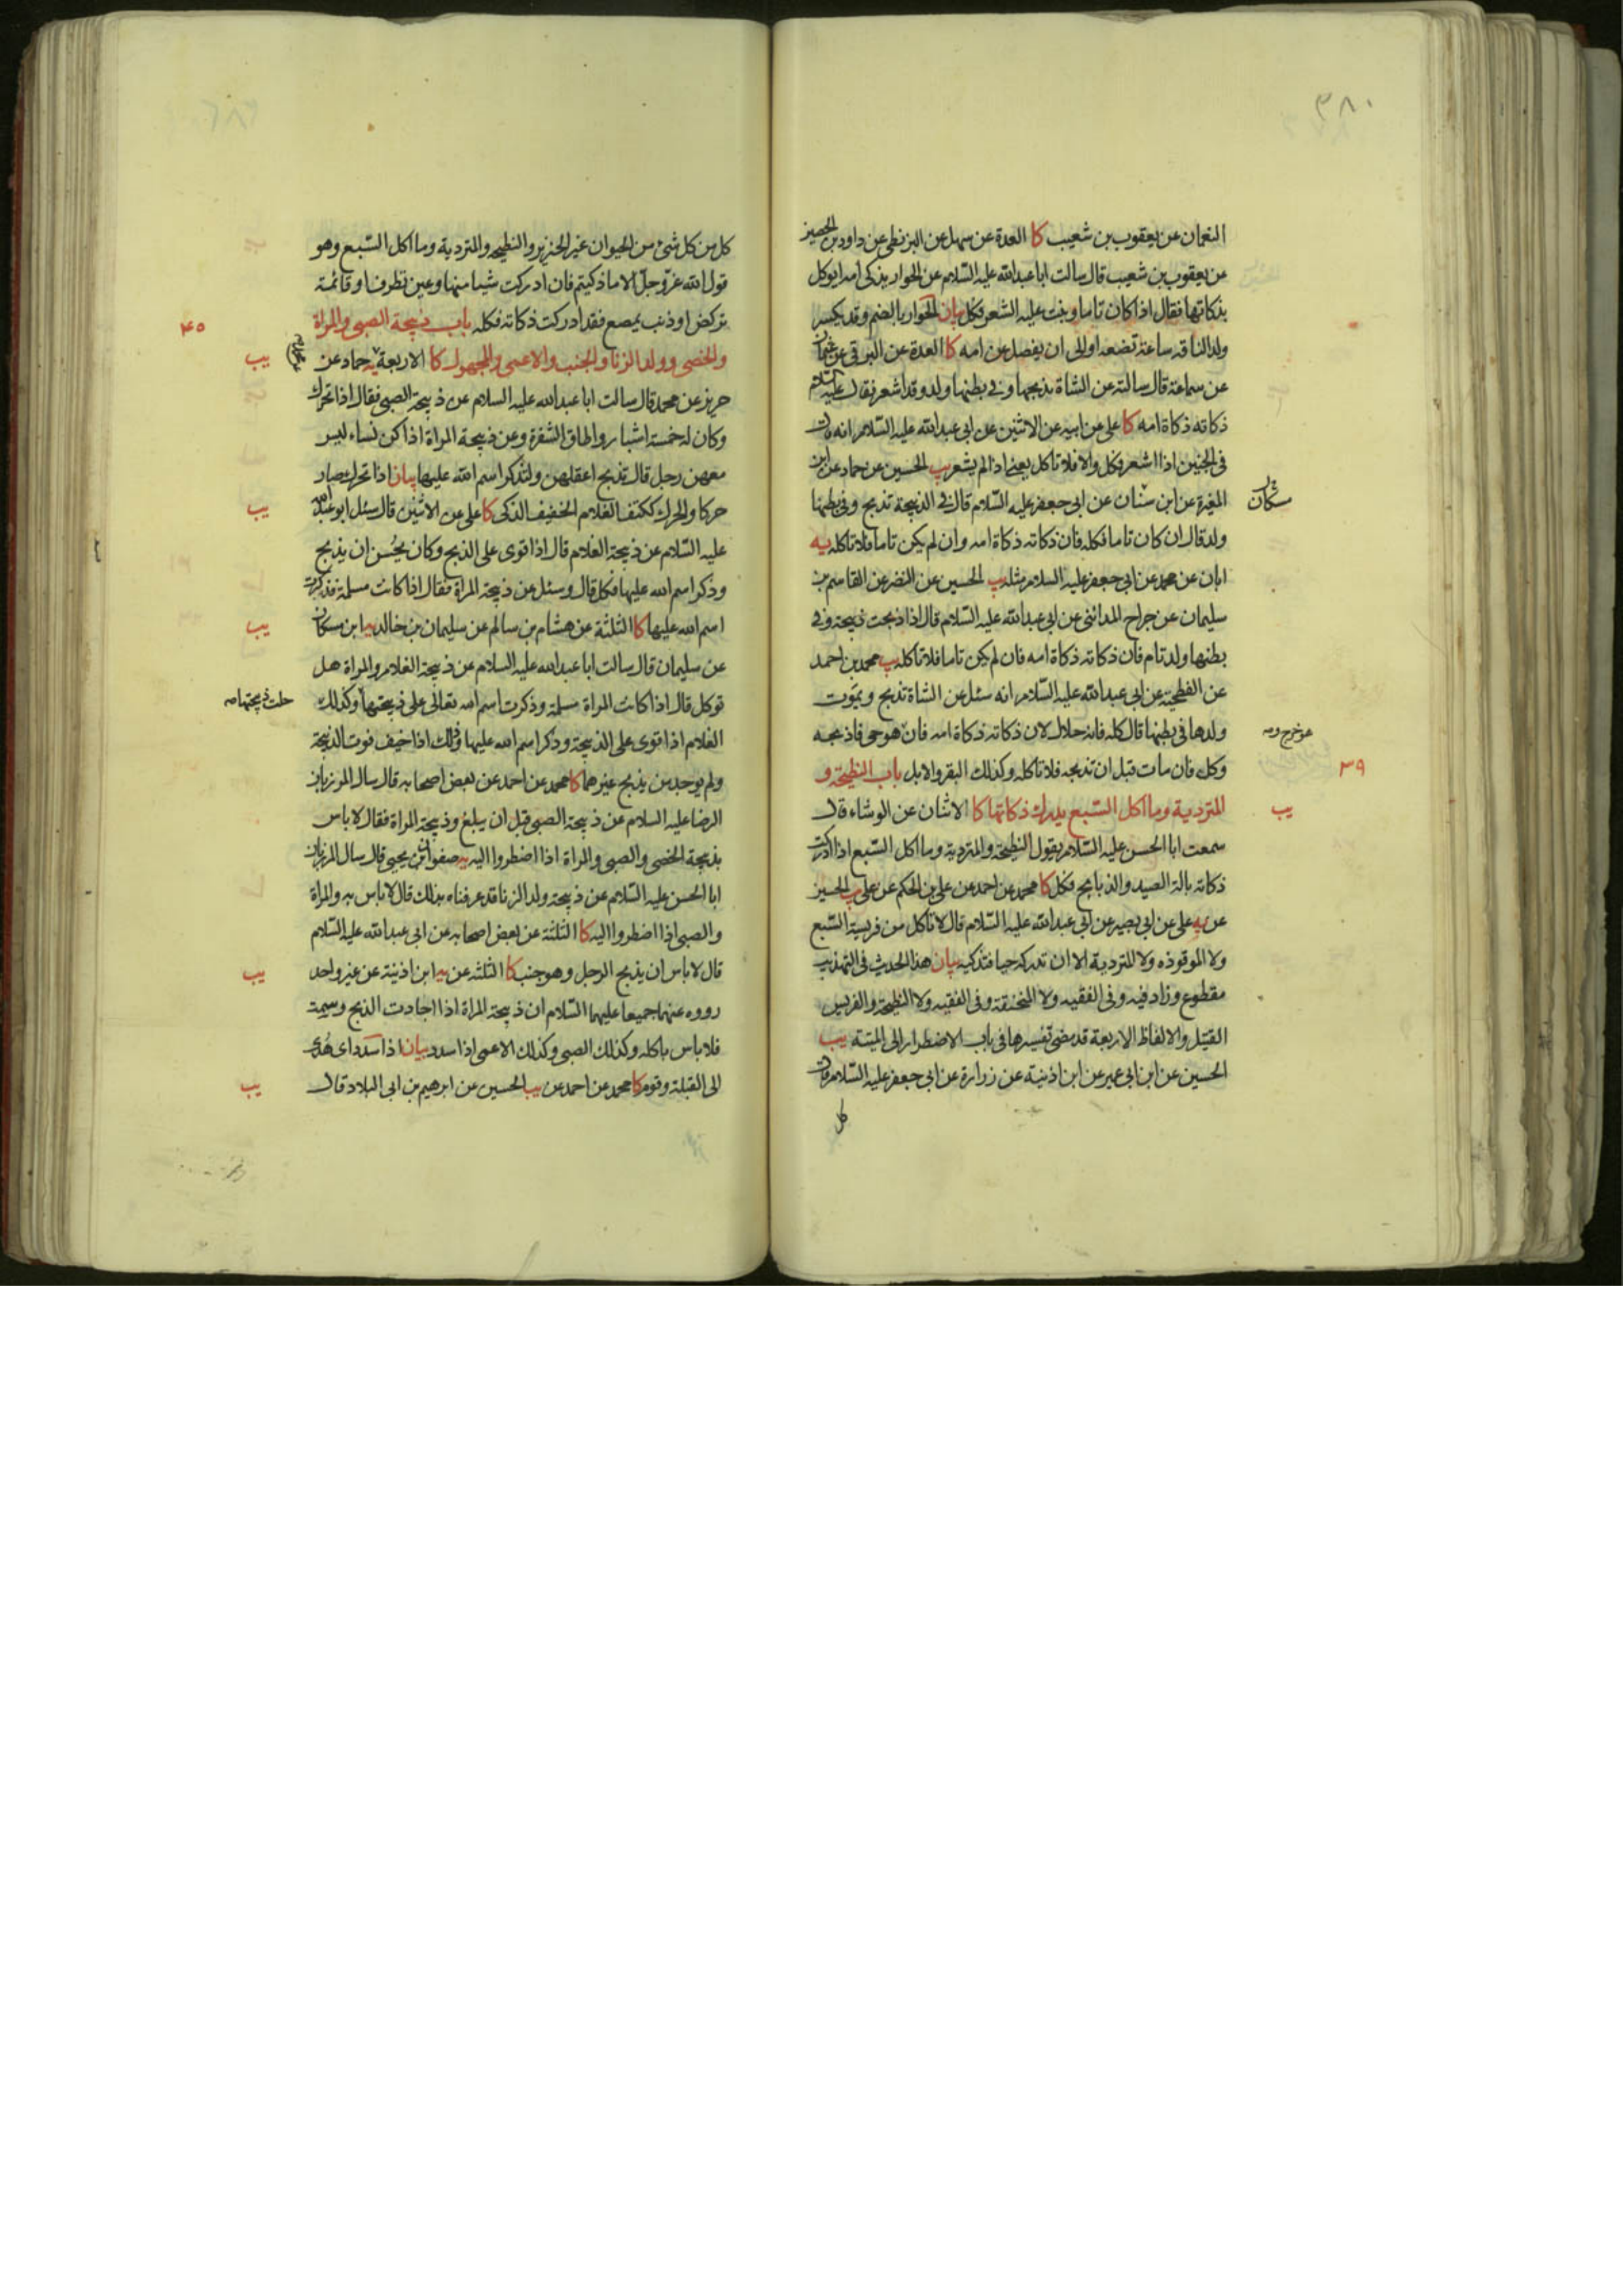 ٣٨٠
النعمان عن يعقوب بن شعيب كا العدة عن سهل عن البزنطى عن داود بن الحصين
عن يعقوب بن شعيب قال سالت ابا عبدالله عليه السّلام عن الحوار يذكى امه ايوكل
بذكاتها فقال اذا كان تاما ونبت عليه الشعر فكل بيان الحوار بالضم وقد يكسر
ولد الناقه ساعة تضعه او الى ان يفصل عن امه كا العدة عن البرقى عن عثمان
عن سماعة قال سالته عن الشاة يذبحها وفى بطنها ولد وقد اشعر فقال عليه السلام
ذكاته ذكاة امه كا على عن ابيه عن الاثنين عن ابى عبدالله عليه السّلام انه قال
فى الجنين اذا اشعر فكل والا فلا تاكل يعنى اذا لم يشعر يب الحسين عن حماد عن ابن
المغيرة عن ابن سنان عن ابى جعفر عليه السّلام قال فى الذبيحة تذبح وفى بطنها
مسكان
ولد قال ان كان تاما فكله فان ذكاته ذكاة امه وان لم يكن تاما فلا تاكله يه
ابان عن محمد عن ابى جعفر عليه السلام مثله يب الحسين عن النضر عن القاسم بن
سليمان عن جراح المدائنى عن ابى عبدالله عليه السّلام قال اذا ذبحت ذبيحة وفى
بطنها ولد تام فان ذكاته ذكاة امه فان لم يكن تاما فلا تاكله يب محمد بن احمد
عن الفطحية عن ابى عبدالله عليه السّلام انه سئل عن الشاة تذبح ويموت
ولدها فى بطنها قال كله فانه حلال لان ذكاته ذكاة امه فان هو حى فاذبحه
خرج و
وكل فان مات قبل ان تذبحه فلا تاكله وكذلك البقر والابل باب النطيحة و
٣٩
المتردية وما اكل السّبع يدرك ذكاتها كا الاثنان عن الوشاء قال
يب
سمعت ابا الحسن عليه السّلام يقول النطيحة والمتردية وما اكل السّبع اذا ادركت
ذكاته بالة الصيد والذبايح فكل كا محمد عن احمد عن على بن الحكم عن على يب الحسين
عن يه على عن ابى بصير عن ابى عبدالله عليه السّلام قال لا تاكل من فريسة السّبع
ولا الموقوذه ولا المتردية الا ان تدركه حيا فتذكيه بيان هذا الحديث فى التهذيب
مقطوع وزاد فيه وفى الفقيه ولا المنخنقة وفى الفقيه ولا النطيحة والفريس
القتيل والالفاظ الاربعة قد مضى تفسيرها فى باب الاضطرار الى الميتة يب
الحسين عن ابن ابى عمير عن ابن اذينة عن زرارة عن ابى جعفر عليه السّلام قال
كل
كل من كل شئ من الحيوان غير الخنزير والنطيحة والمتردية وما اكل السّبع وهو
قول الله عزّ وجلّ الا ما ذكيتم فان ادركت شيئا منها وعين تطرف او قائمة
تركض او ذنب يمصع فقد ادركت ذكاته فكله باب ذبيحة الصبى والمراة
٤٠
والخصى وولد الزنا والجنب والاعمى والمجهول كا الاربعة يه حماد عن
يب
حريز عن محمد قال سالت ابا عبدالله عليه السلام عن ذبيحة الصبى فقال اذا تحرك
وكان له خمسة اشبار واطاق الشفرة وعن ذبيحة المراة اذا كن نساء ليس
معهن رجل قال تذبح اعقلهن ولتذكر اسم الله عليها بيان اذا تحرك صار
حركا والحرك ككتف الغلام الخفيف الذكى كا على عن الاثنين قال سئل ابو عبدالله
يب
عليه السّلام عن ذبيحة الغلام قال اذا قوى على الذبح وكان يحُسن ان يذبح
وذكر اسم الله عليها فكل قال وسئل عن ذبيحة المراة فقال اذا كانت مسلمة فذكرت
اسم الله عليها كا الثلثة عن هشام بن سالم عن سليمان بن خالد يه ابن مسكان
يب
عن سليمان قال سالت ابا عبدالله عليه السلام عن ذبيحة الغلام والمراة هل
توكل قال اذا كانت المراة مسلمة وذكرت اسم الله تعالى على ذبيحتها وكذلك
حلت ذبيحتها
الغلام اذا قوى على الذبيحة وذكر اسم الله عليها وذلك اذا خيف فوت الذبيحة
ولم يوجد من يذبح غيرهما كا محمد عن احمد عن بعض اصحابه قال سال المرزبان
الرضا عليه السلام عن ذبيحة الصبى قبل ان يبلغ وذبيحة المراة فقال لا باس
بذبيحة الخصى والصبى والمراة اذا اضطروا اليه يه صفوان بن يحيى قال سال المرزبان
ابا الحسن عليه السّلام عن ذبيحة ولد الزنا قد عرفناه بذلك قال لا باس به والمراة
والصبى اذا اضطروا اليه كا الثلثة عن بعض اصحابه عن ابى عبدالله عليه السّلام
قال لا باس ان يذبح الرجل وهو جنب كا الثلثه عن يه ابن اذينة عن غير واحد
يب
رووه عنهما جميعا عليهما السّلام ان ذبيحة المراة اذا اجادت الذبح وسمت
فلا باس باكله وكذلك الصبى وكذلك الاعمى اذا سدد بيان اذا سدد اى هُدى
الى القبلة وقوم كا محمد عن احمد عن يب الحسين عن ابرهيم بن ابى البلاد قال
يب